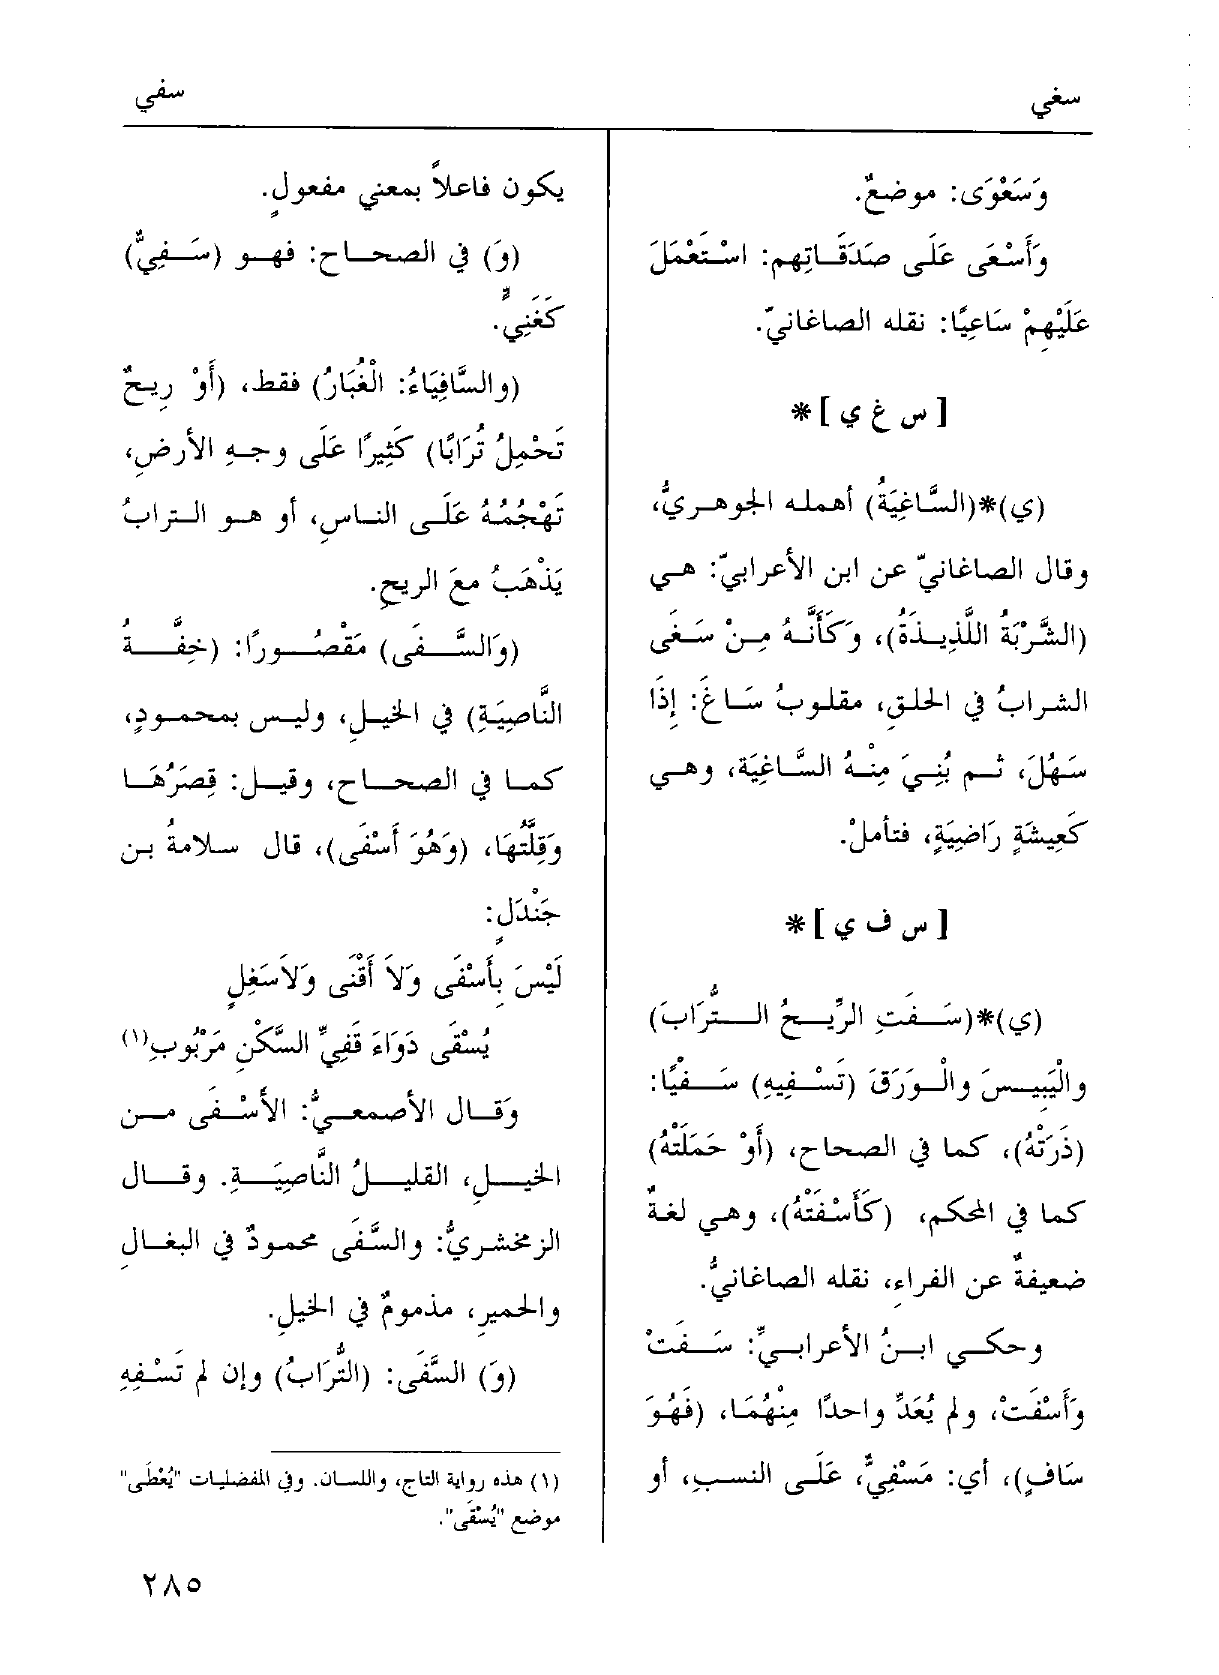 سغي
سفي
وَسَعْوَى: موضعٌ.
وَأَسْعَى عَلَى صَدَقَاتِهم: اسْتَعْمَلَ
عَلَيْهِمْ سَاعِيًا: نقله الصاغانيّ.
[ س غ ي ]*
(ي)*(السَّاغِيَةُ) أهمله الجوهريُّ،
وقال الصاغانيّ عن ابن الأعرابيّ: هي
(الشَّرْبَةُ اللَّذِيذَةُ)، وَكَأَنَّهُ مِنْ سَغَى
الشرابُ في الحلقِ، مقلوبُ سَاغَ: إِذَا
سَهُلَ، ثم بُنِيَ مِنْهُ السَّاغِيَة، وهي
كَعِيشَةٍ رَاضِيَةٍ، فتأملْ.
[ س ف ي ]*
(ي)*(سَفَتِ الرِّيحُ التُّرَابَ)
والْيَبِيسَ والْوَرَقَ (تَسْفِيهِ) سَفْيًا:
(ذَرَتْهُ)، كما في الصحاح، (أَوْ حَمَلَتْهُ)
كما في المحكم، (كَأَسْفَتْهُ)، وهي لغةٌ
ضعيفةٌ عن الفراءِ، نقله الصاغانيُّ.
وحكي ابنُ الأعرابيِّ: سَفَتْ
وَأَسْفَتْ، ولم يُعَدِّ واحدًا مِنْهُمَا، (فَهُوَ
سَافٍ)، أي: مَسْفِيٌّ، عَلَى النسبِ، أو
يكون فاعلاً بمعني مفعولٍ.
(وَ) في الصحاح: فهو (سَفِيٌّ)
كَغَنِيٍّ.
(والسَّافِيَاءُ: الْغُبَارُ) فقط، (أَوْ رِيحٌ
تَحْمِلُ تُرَابًا) كَثِيرًا عَلَى وجهِ الأرضِ،
تَهْجُمُهُ عَلَى الناسِ، أو هو الترابُ
يَذْهَبُ معَ الريحِ.
(وَالسَّفَى) مَقْصُورًا: (خِفَّةُ
النَّاصِيَةِ) في الخيلِ، وليس بمحمودٍ،
كما في الصحاح، وقيل: قِصَرُهَا
وَقِلَّتُهَا، (وَهُوَ أَسْفَى)، قال سلامةُ بن
جَنْدَلٍ:
لَيْسَ بِأَسْفَى وَلاَ أَقْنَى وَلاَسَغِلٍ
يُسْقَى دَوَاءَ قَفِيِّ السَّكْنِ مَرْبُوبِ(١)
وَقال الأصمعيُّ: الأسْفَى من
الخيلِ، القليلُ النَّاصِيَةِ. وقال
الزمخشريُّ: والسَّفَى محمودٌ في البغالِ
والحميرِ، مذمومٌ في الخيلِ.
(وَ) السَّفَى: (التُّرَابُ) وإن لم تَسْفِهِ
(١) هذه رواية التاج، واللسان. وفي المفضليات "يُعْطَى"
موضع "يُسْقَى".
٢٨٥